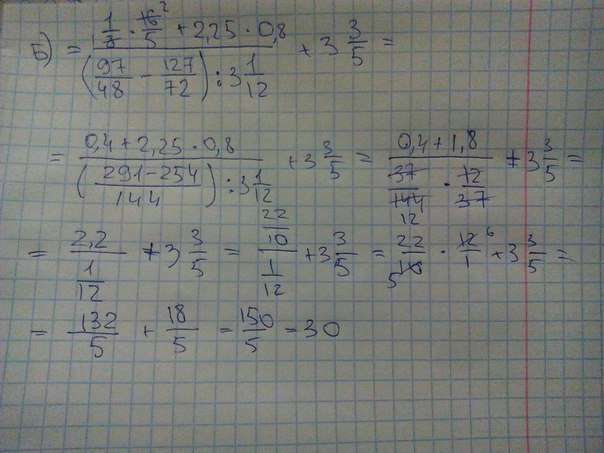 Б) = (1/8 · 16²/5 + 2,25 · 0,8) / ((97/48 − 127/72) : 3 1/12) + 3 3/5 =
= (0,4 + 2,25 · 0,8) / (((291 − 254)/144) : 3 1/12) + 3 3/5 = (0,4 + 1,8) / (37/144 12 · 12/37) + 3 3/5 =
= 2,2 / (1/12) + 3 3/5 = (22/10) / (1/12) + 3 3/5 = 22/10 5 · 12 6/1 + 3 3/5 =
= 132/5 + 18/5 = 150/5 = 30